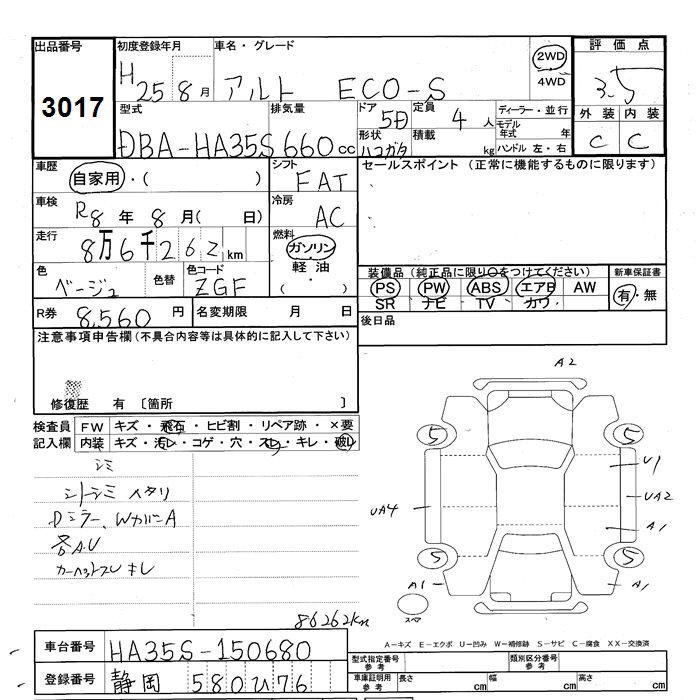 出品番号 初度登録年月 車名・グレード 評価点
3017 H25 8月 アルト ECO-S 2WD 4WD 3.5
型式 排気量 ドア 定員 ディーラー・並行 外装 内装
DBA-HA35S 660cc 5D 4人 モデル年式 年 C C
形状 ハコガタ 積載 kg ハンドル 左・右
車歴 自家用・( ) シフト FAT セールスポイント (正常に機能するものに限ります)
車検 R8年8月( 日) 冷房 AC
走行 8万6千262km 燃料 ガソリン・軽油・( )
色 ベージュ 色替 色コード ZGF
装備品 (純正品に限り○をつけてください) 新車保証書
PS PW ABS エアB AW 有・無
SR ナビ TV カワ
R券 8,560円 名変期限 月 日 後日品
注意事項申告欄(不具合内容等は具体的に記入して下さい)
修復歴 有 〔箇所 〕
検査員 FW キズ・飛石・ヒビ割・リペア跡・×要
記入欄 内装 キズ・汚レ・コゲ・穴・スレ・キレ・破レ
シミ
シートシミ ヘタリ
Dミラー、WカバーA
各AU
カーペットスレ キレ
86262km
A2
5 5
U1
UA4 UA2
A1
5 5
A1 A1
スペア
A-キズ E-エクボ U-凹み W-補修跡 S-サビ C-腐食 XX-交換済
車台番号 HA35S-150680
型式指定番号 参考 類別区分番号 参考
登録番号 静岡 580ひ76
車庫証明用 参考 長さ cm 幅 cm 高さ cm